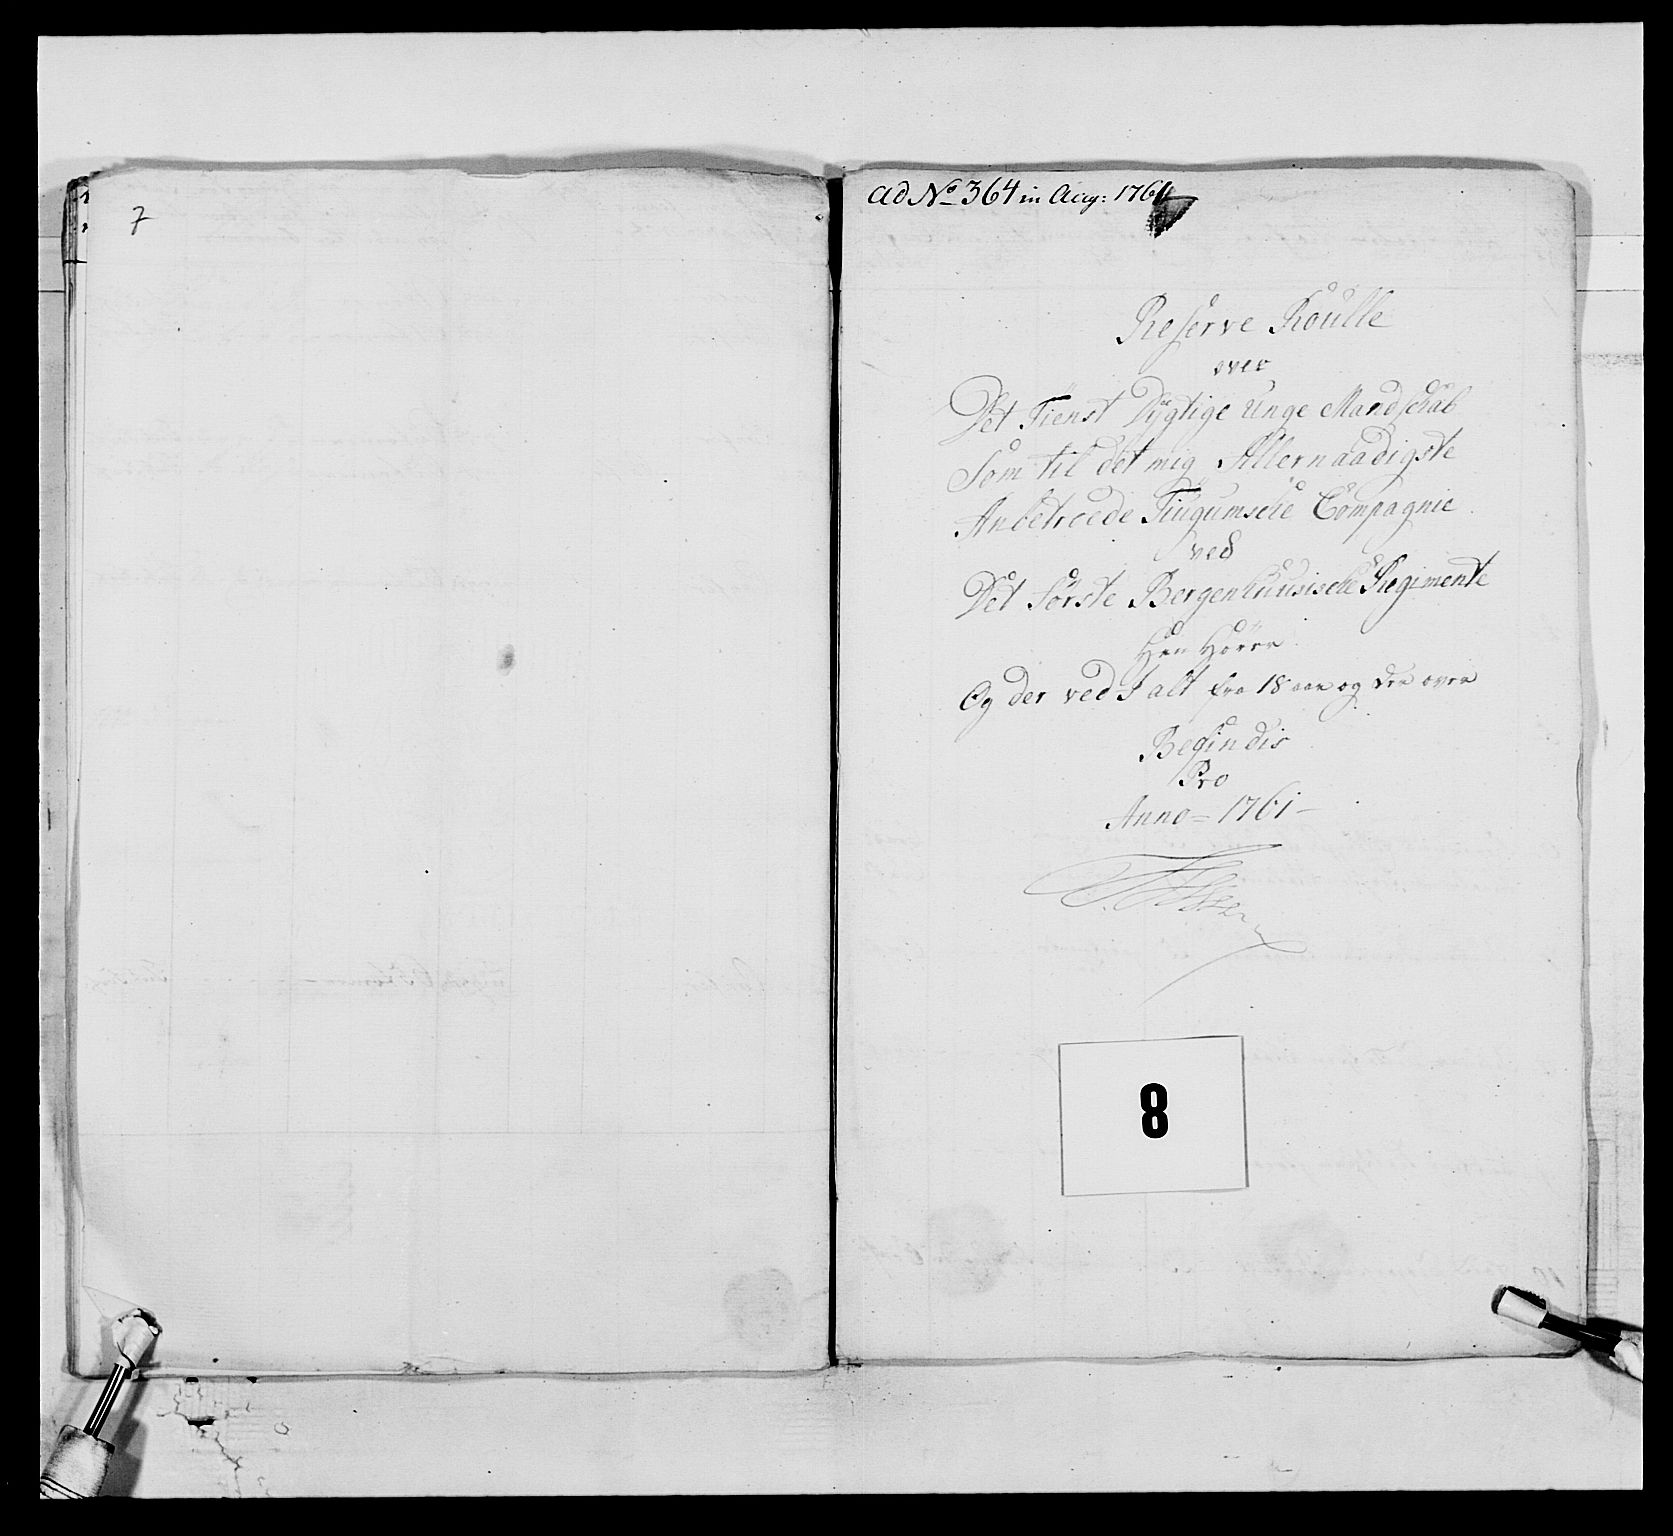 7
ad No 364 in Aug: 1761
Reserve Roulle
over
Det Tienst Dygtige Unge Mandschab
Som til det mig Allernaadigste
Anbetroede Compagnie
ved
Det Første Bergenhuusische Regimente
Og der ved t alt fra 18 aar og der over
Befindis
Pro
Anno = 1761 -
8